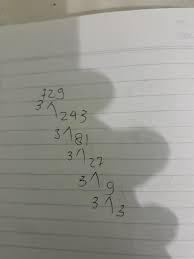 729
3 243
3 81
3 27
3 9
3 3